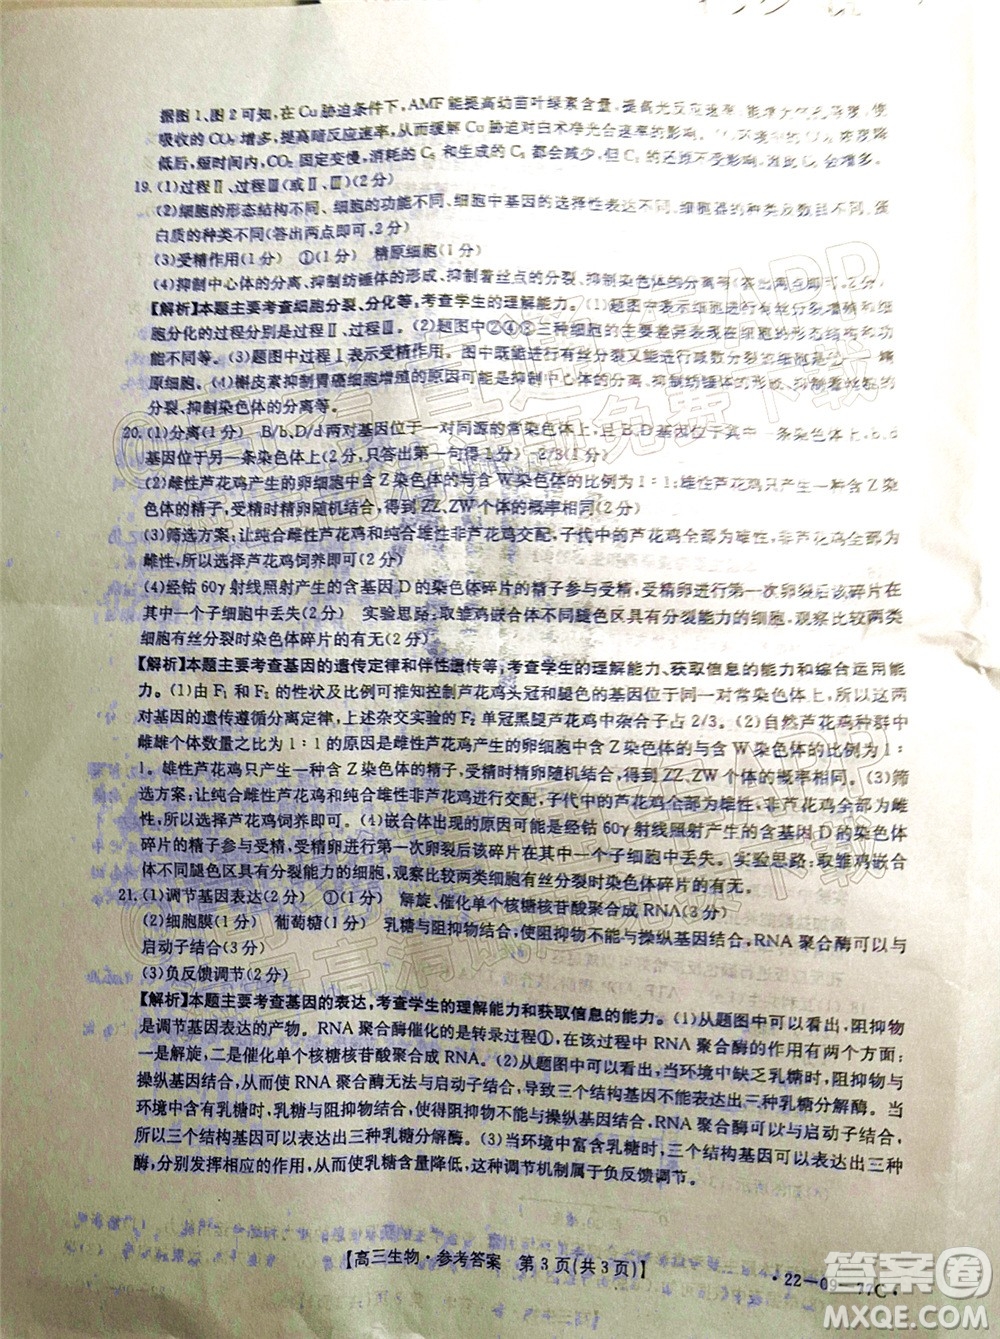 据图1、图2可知,在Cu胁迫条件下,AMF能提高幼苗叶绿素含量,提高光反应速率,
吸收的CO₂增多,提高暗反应速率,从而缓解Cu胁迫对白术净光合速率的影响。
低后,短时间内,CO₂固定变慢,消耗的C₅和生成的C₃都会减少,但C₃的还原不受影响,
19.(1)过程Ⅱ、过程Ⅲ(或Ⅱ、Ⅲ)(2分)
(2)细胞的形态结构不同、细胞的功能不同、细胞中基因的选择性表达不同、细胞器的种类及数目不同、蛋
白质的种类不同(答出两点即可,2分)
(3)受精作用(1分) ①(1分) 精原细胞(1分)
(4)抑制中心体的分离、抑制纺锤体的形成、抑制着丝点的分裂、抑制染色体的分离等(答出两点即可,2分)
【解析】本题主要考查细胞分裂、分化等,考查学生的理解能力。(1)题图中能发生
细胞分化的过程分别是过程Ⅱ、过程Ⅲ。(2)题图中②④③三种细胞的主要差异表现在细胞的形态结构、功
能不同等。(3)题图过程Ⅰ表示受精作用。图中既能进行有丝分裂又能进行减数分裂的细胞是
原细胞。(4)槲皮素抑制胃癌细胞增殖的原因可能是抑制中心体的分离、抑制纺锤体的形成、抑制着丝点的
分裂、抑制染色体的分离等。
20.(1)分离(1分) B/b、D/d两对基因位于一对同源的常染色体上,且B、D基因位于其中一条染色体上,b、d
基因位于另一条染色体上(2分,只答出第一句得1分) 2/3(1分)
(2)雌性芦花鸡产生的卵细胞中含Z染色体的与含W染色体的比例为1∶1,雄性芦花鸡只产生一种含Z
染色体的精子,受精时精卵随机结合,得到ZZ、ZW个体的概率相同(2分)
(3)筛选方案:让纯合雌性芦花鸡和纯合雄性非芦花鸡交配,子代中的芦花鸡全部为雄性,非芦花鸡全部为
雌性,所以选择芦花鸡饲养即可(2分)
(4)经钴60γ射线照射产生的含基因D的染色体碎片的精子参与受精,受精卵第一次卵裂后该碎片在
其中一个子细胞中丢失(2分) 实验思路:取雏鸡嵌合体不同腿色区具有分裂能力的细胞,观察比较两类
细胞有丝分裂时染色体碎片的有无(2分)
【解析】本题主要考查基因的遗传定律和伴性遗传等,考查学生的理解能力、获取信息的能力和综合运用能
力。(1)由F₁和F₂的性状及比例可推知控制芦花鸡头冠和腿色的基因位于同一对常染色体上,所以这两
对基因的遗传遵循分离定律,上述杂交实验的F₂单冠黑腿芦花鸡中杂合子占2/3。(2)自然芦花鸡种群中
雌雄个体数量之比为1∶1的原因是雌性芦花鸡产生的卵细胞中含Z染色体的与含W染色体的比例为1∶
1。雄性芦花鸡只产生一种含Z染色体的精子,受精时精卵随机结合,得到ZZ、ZW个体的概率相同。(3)筛
选方案:让纯合雌性芦花鸡和纯合雄性非芦花鸡进行交配,子代中的芦花鸡全部为雄性,非芦花鸡全部为雌
性,所以选择芦花鸡饲养即可。(4)嵌合体出现的原因可能是经钴60γ射线照射产生的含基因D的染色体
碎片的精子参与受精,受精卵第一次卵裂后该碎片在其中一个子细胞中丢失。实验思路:取雏鸡嵌合体不
同腿色区具有分裂能力的细胞,观察比较两类细胞有丝分裂时染色体碎片的有无。
21.(1)调节基因表达(2分) ①(1分) 解旋、催化单个核糖核苷酸聚合成RNA(3分)
(2)细胞膜(1分) 葡萄糖(1分) 乳糖与阻抑物结合,使阻抑物不能与操纵基因结合,RNA聚合酶可以与
启动子结合(3分)
(3)负反馈调节(2分)
【解析】本题主要考查基因的表达,考查学生的理解能力和获取信息的能力。(1)从题图中可以看出,阻抑物
是调节基因表达的产物。RNA聚合酶催化的是转录过程①,在该过程中RNA聚合酶的作用有两个,
一是解旋,二是催化单个核糖核苷酸聚合成RNA。(2)从题图中可以看出,当环境中缺乏乳糖时,阻抑物与
操纵基因结合,RNA聚合酶无法与启动子结合,导致三个结构基因不能表达出三种乳糖分解酶。当
环境中有乳糖时,乳糖与阻抑物结合,使阻抑物不能与操纵基因结合,RNA聚合酶可以与启动子结合,
所以三个结构基因可以表达出三种乳糖分解酶。(3)当环境中富含乳糖时,三个结构基因可以表达出三种
酶,分别发挥相应的作用,从而使乳糖含量降低,这种调节机制属于负反馈调节。
【高三生物·参考答案 第3页(共3页)】
·22-09-77C·
答案圈
MXQE.COM